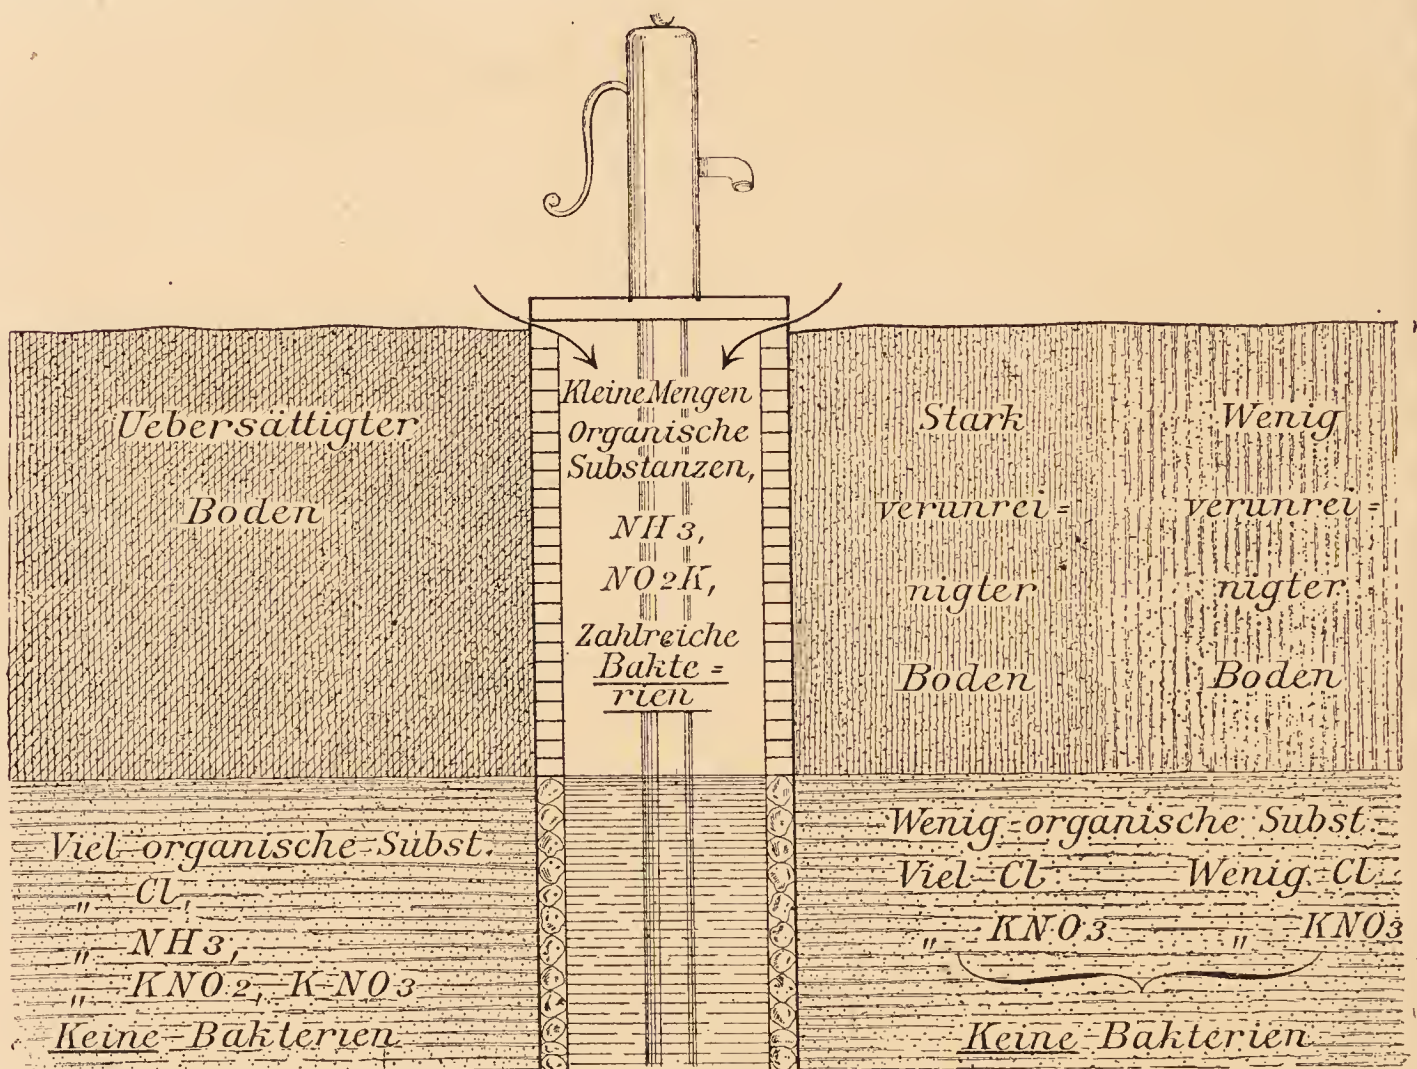 Uebersättigter
Boden
Kleine Mengen
Organische
Substanzen,
NH3,
NO2K,
Zahlreiche
Bakte=
rien
Stark
verunrei=
nigter
Boden
Wenig
verunrei=
nigter
Boden
Viel organische Subst.
„ Cl,
„ NH3,
„ KNO2, KNO3
Keine Bakterien
Wenig organische Subst.
Viel Cl Wenig Cl
„ KNO3 „ KNO3
Keine Bakterien